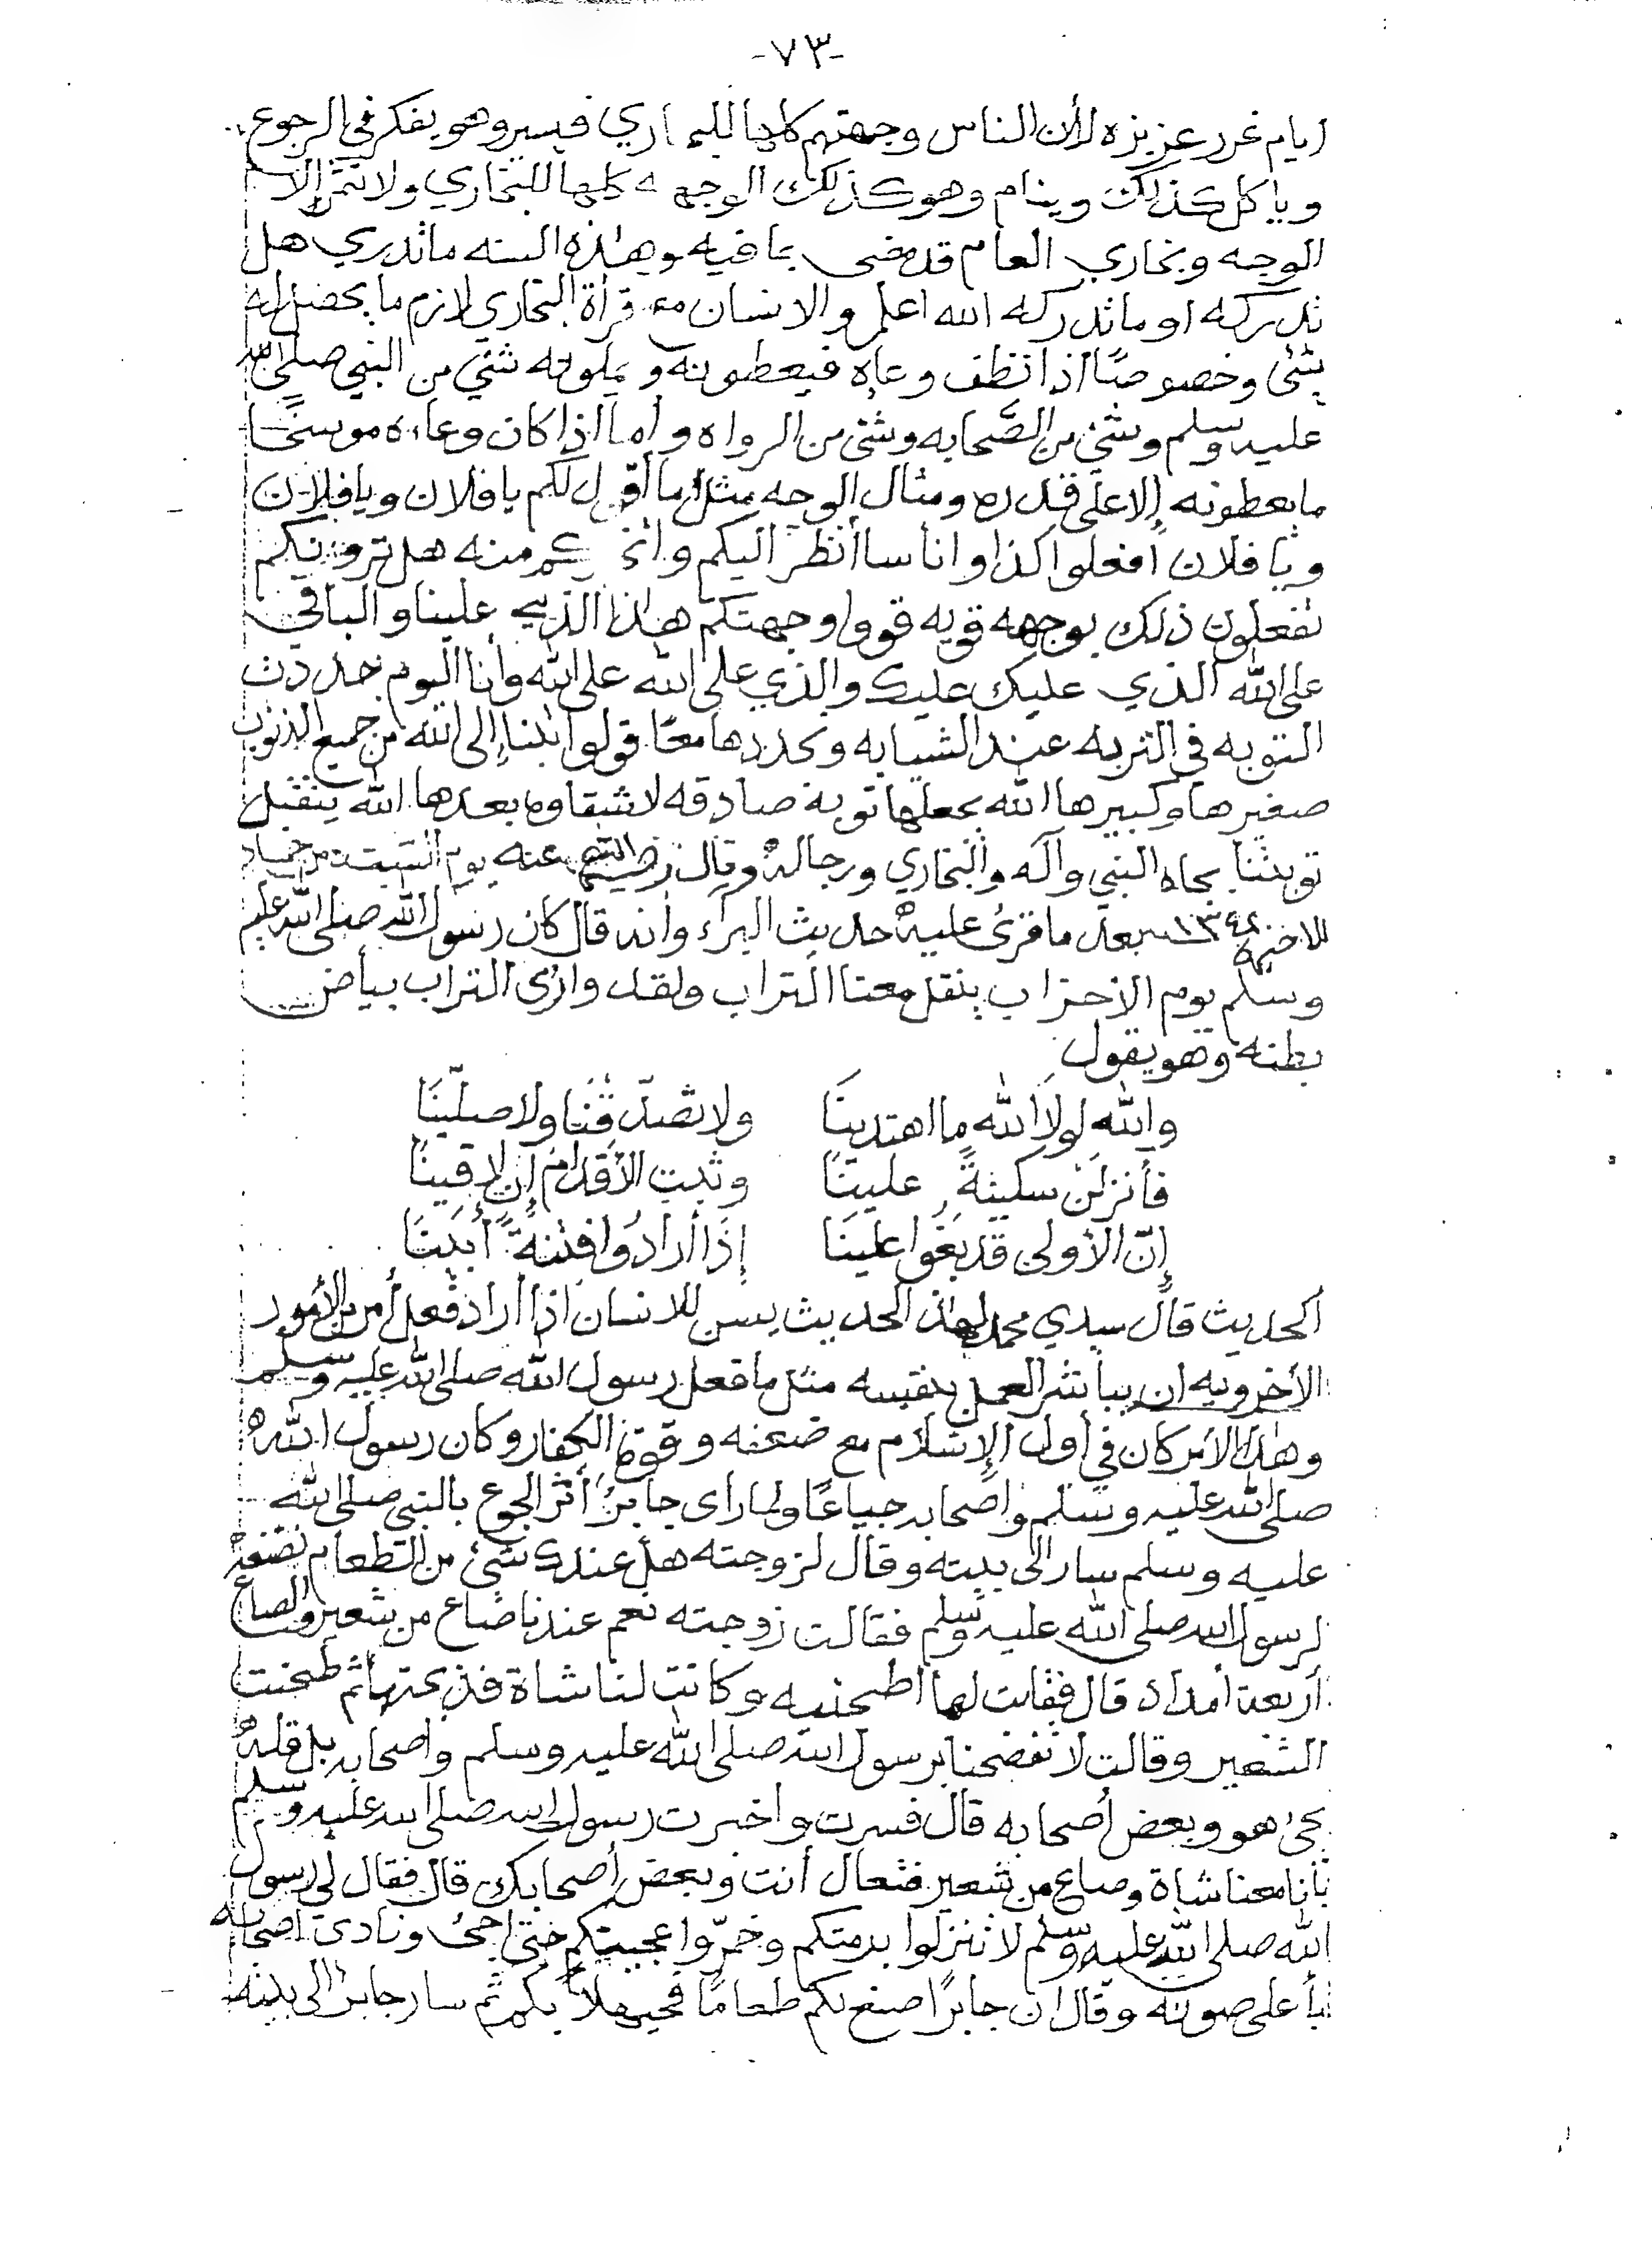 -٧٣-
أيام غرر عزيزه لأن الناس وجهتهم كلها للبخاري فيسير وهو يفكر في الرجوع
ويأكل كذلك وينام وهو كذلك الوجهه كلها للبخاري ولا تتم إلا
الوجه وبخاري العام قد مضى بما فيه وهاذه السنه ماندري هل
ندركه او ماندركه الله اعلم والانسان مع قرأة البخاري لازم ما يحصل له
شئ وخصوصًا اذا نظف وعاه فيعطونه ويملونه شئ من النبي صلى الله
عليه وسلم وشئ من الصَّحابه وشئ من الرواه وأما اذا كان وعاءه موسخًا
مايعطونه إلا على قدره ومثال الوجه مثل ما أقول لكم يا فلان ويا فلان
ويا فلان أفعلوا كذا وانا سا أنظر اليكم هل ترونكم
تفعلون ذلك بوجهه قويه قووا وجهتكم هاذا الذي علينا والباقي
على الله الذي عليك عليك والذي على الله على الله وأنا اليوم جددت
التوبه في التربه عند الشبابه ونجددها معًا قولوا تبنا إلى الله من جميع الذنوب
صغيرها وكبيرها الله يجعلها توبة صادقه لا شقاوه بعدها الله يتقبل
توبتنا بجاه النبي وآله والبخاري ورجاله وقال رضي الله عنه يوم السبت من جماد
الاخره بعد ما قرئ عليه حديث البراء وانه قال كان رسول الله صلى الله عليه
وسلم يوم الأحزاب ينقل معنا التراب ولقد وارى التراب بياض
بطنه وهو يقول
والله لولا الله ما اهتدينَا ولا تصدّقْنَا ولا صلّينَا
فأنزلَنْ سكينةً علينَا وثبت الأقدام إن لاقينَا
إنّ الأولى قد بَغَوا علينَا إِذَا أرادُوا فتنةً أبَينَا
ألحديث قال سيدي محمد لهاذا الحديث يسن للانسان اذا أراد فعل أمر من الأمور
الأخرويه ان يباشر العمل بنفسه مثل ما فعل رسول الله صلى الله عليه وسلم
وهاذا الأمر كان في أول الإسلام مع ضعفه وقوة الكفار وكان رسول الله
صلى الله عليه وسلم وأصحابه جياعًا ولما رأى جابرُ أثر الجوع بالنبي صلى الله
عليه وسلم سار الى بيته وقال لزوجته هل عندك شئ من الطعام نصنعه
لرسول الله صلى الله عليه وسلم فقالت زوجته نعم عندنا صاع من شعير والصاع
أربعة أمداد قال فقلت لها أطحنيه وكانت لنا شاة فذبحتها ثم طحنت
الشعير وقالت لا تفضحنا برسول الله صلى الله عليه وسلم وأصحابه بل قله
يجئ هو وبعض أصحابه قال فسرت واخبرت رسول الله صلى الله عليه وسلم
بأنا معنا شاة وصاع من شعير فتعال أنت وبعض أصحابك قال فقال لي رسول
الله صلى الله عليه وسلم لا تنزلوا برمتكم وخمّروا عجينكم حتى اجئ ونادى اصحابه
بأعلى صوته وقال ان جابرًا صنع لكم طعامًا فحيهلاً بكم ثم سار جابر الى بيته